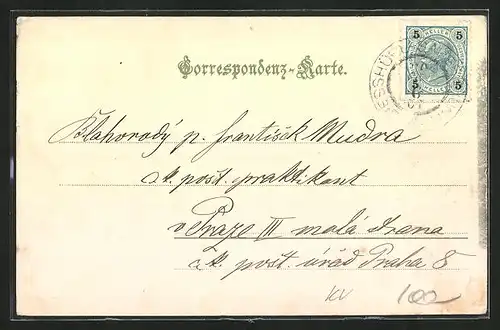 5 HELLER 5
5 HELLER 5
GIESSHÜBL
Correspondenz-Karte.
Blahorodý p. František Mudra
c. k. post. praktikant
v Praze III malá strana
c. k. post. úřad Praha 8
KV 100